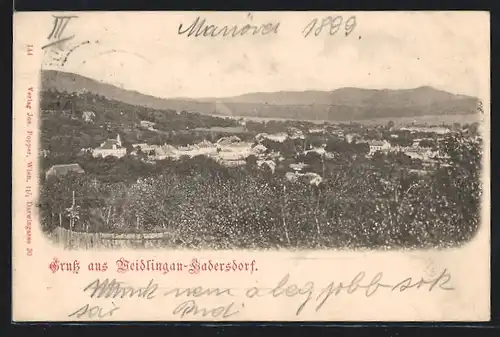 III
Manőver 1899.
144 Verlag Jos. Popper, Wien, II/1, Darwingasse 30
Gruß aus Weidlingau-Hadersdorf.
Munk nem a legjobb sok
sár